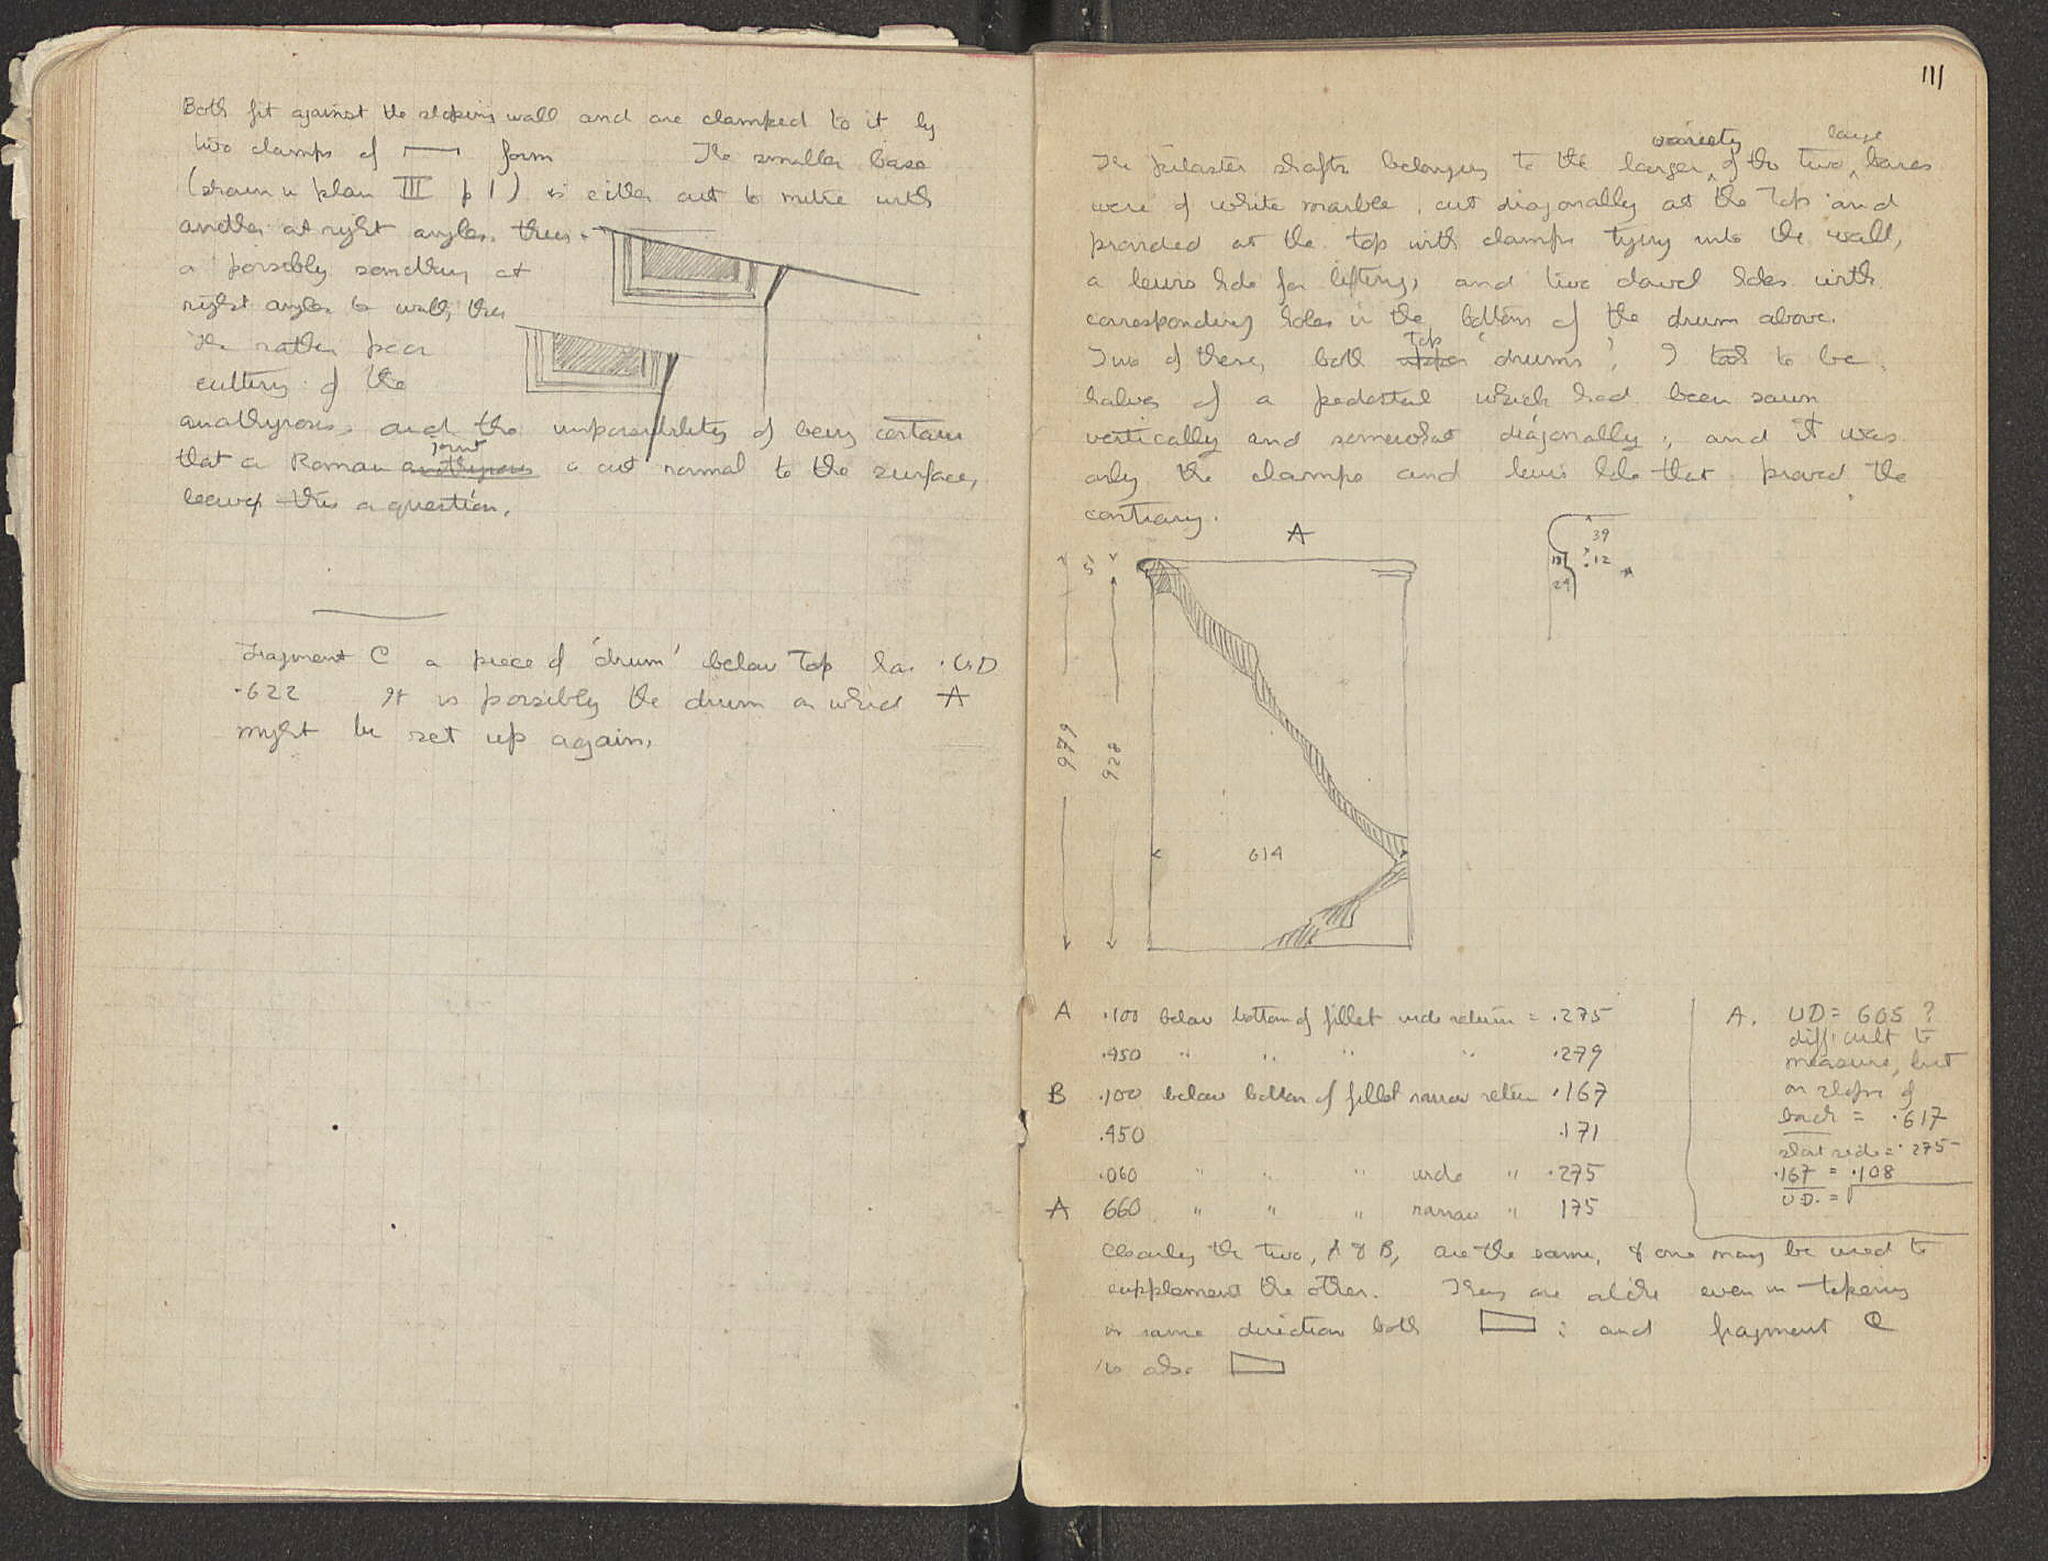 Both fit against the sloping wall and are clamped to it by
two clamps of form The smaller base
(shown in plan III p 1) is either cut to mitre with
another at right angles, thus
or possibly something at
right angles to wall, thus
The rather poor
cutting of the
anathyrosis, and the impossibility of being certain
joint
that a Roman anathyrosis is cut normal to the surface,
leaves this a question.
Fragment C a piece of 'drum' below Top has .UD
.622 It is possibly the drum on which A
might be set up again.
111
variety large
The pilaster shafts belonging to the larger of the two bases
were of white marble, cut diagonally at the Top and
provided at the top with clamps tying into the wall,
a lewis hole for lifting, and two dowel holes with
corresponding holes in the bottom of the drum above.
Top
Two of these, both upper 'drums', I took to be
halves of a pedestal which had been sawn
vertically and somewhat diagonally, and it was
only the clamps and lewis hole that proved the
contrary.
A
39
12
24
979
928
614
A .100 below bottom of fillet wide return = .275
.950 " " " " .279
B .100 below bottom of fillet narrow return .167
.450 .171
.060 " " " wide " .275
A 660 " " " narrow " 175
A. UD = 605 ?
difficult to
measure, but
on slope of
back = .617
short side = .275-
.167 = .108
U.D. = √
Clearly the two, A & B, are the same, & one may be used to
supplement the other. They are alike even in tapering
in same direction both : and fragment C
is also